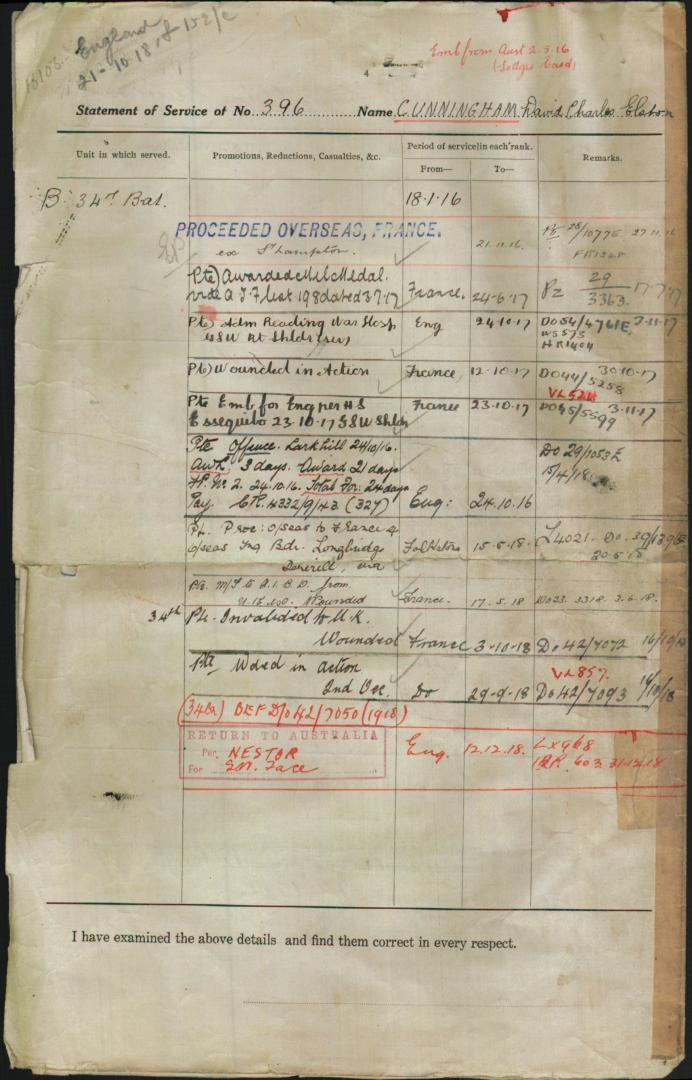 England
21-10-18
Emb from Aust 2.5.16
(Ledger Card)
Statement of Service of No. 396 Name CUNNINGHAM David Charles
Unit in which served.
Promotions, Reductions, Casualties, &c.
Period of service in each rank.
From—
To—
Remarks.
B 34th Bat.
18.1.16
PROCEEDED OVERSEAS, FRANCE.
ex S'hampton.
21.11.16.
27.11.16
Pte) Awarded Mil Medal.
vide A.I.F. List 198 dated 3.7.17
France. 24-6-17
29
3363
17-7-17
Pte) Adm Reading War Hosp
GSW Rt Shldr (sev)
Eng 24-10-17
DO54/4761E 3-11-17
WS 573
HR1404
Pte) Wounded in Action
France 12-10-17
DO44/5258 30-10-17
VL524
Pte Emb for Eng per H.S
Essequibo 23.10.17 GSW Shldr
France 23-10-17
DO45/5599 3-11-17
Pte Offence. Larkhill 24/10/16.
AWL 3 days. Award 21 days
F.P. No 2. 24.10.16. Total For: 24 days
Pay. C.R. 4332/9/43. (327)
Eng: 24.10.16
DO 29/1053E
15/4/18
Pte. Proc: o/seas to France
o/seas Trg Bde. Longbridge
Deverill, via
Folkstone 15-5-18.
L4021. Do. 39/139E
20-5-18
Pte. M/I to A.I.B.D. from
U.K. Wounded
France. 17.5.18
Do23. 3318. 3.6.18.
34th Pte. Invalided to U.K.
Wounded France 3-10-18 Do 42/7072
Pte Wded in action
2nd Occ. Do 29-9-18 Do 42/7093 16/10/18
VL857.
(34Bn) BEF D/o 42/7050 (1918)
RETURN TO AUSTRALIA
Per NESTOR
For
Eng. 12.12.18. LX968
603 31-12-18
I have examined the above details and find them correct in every respect.